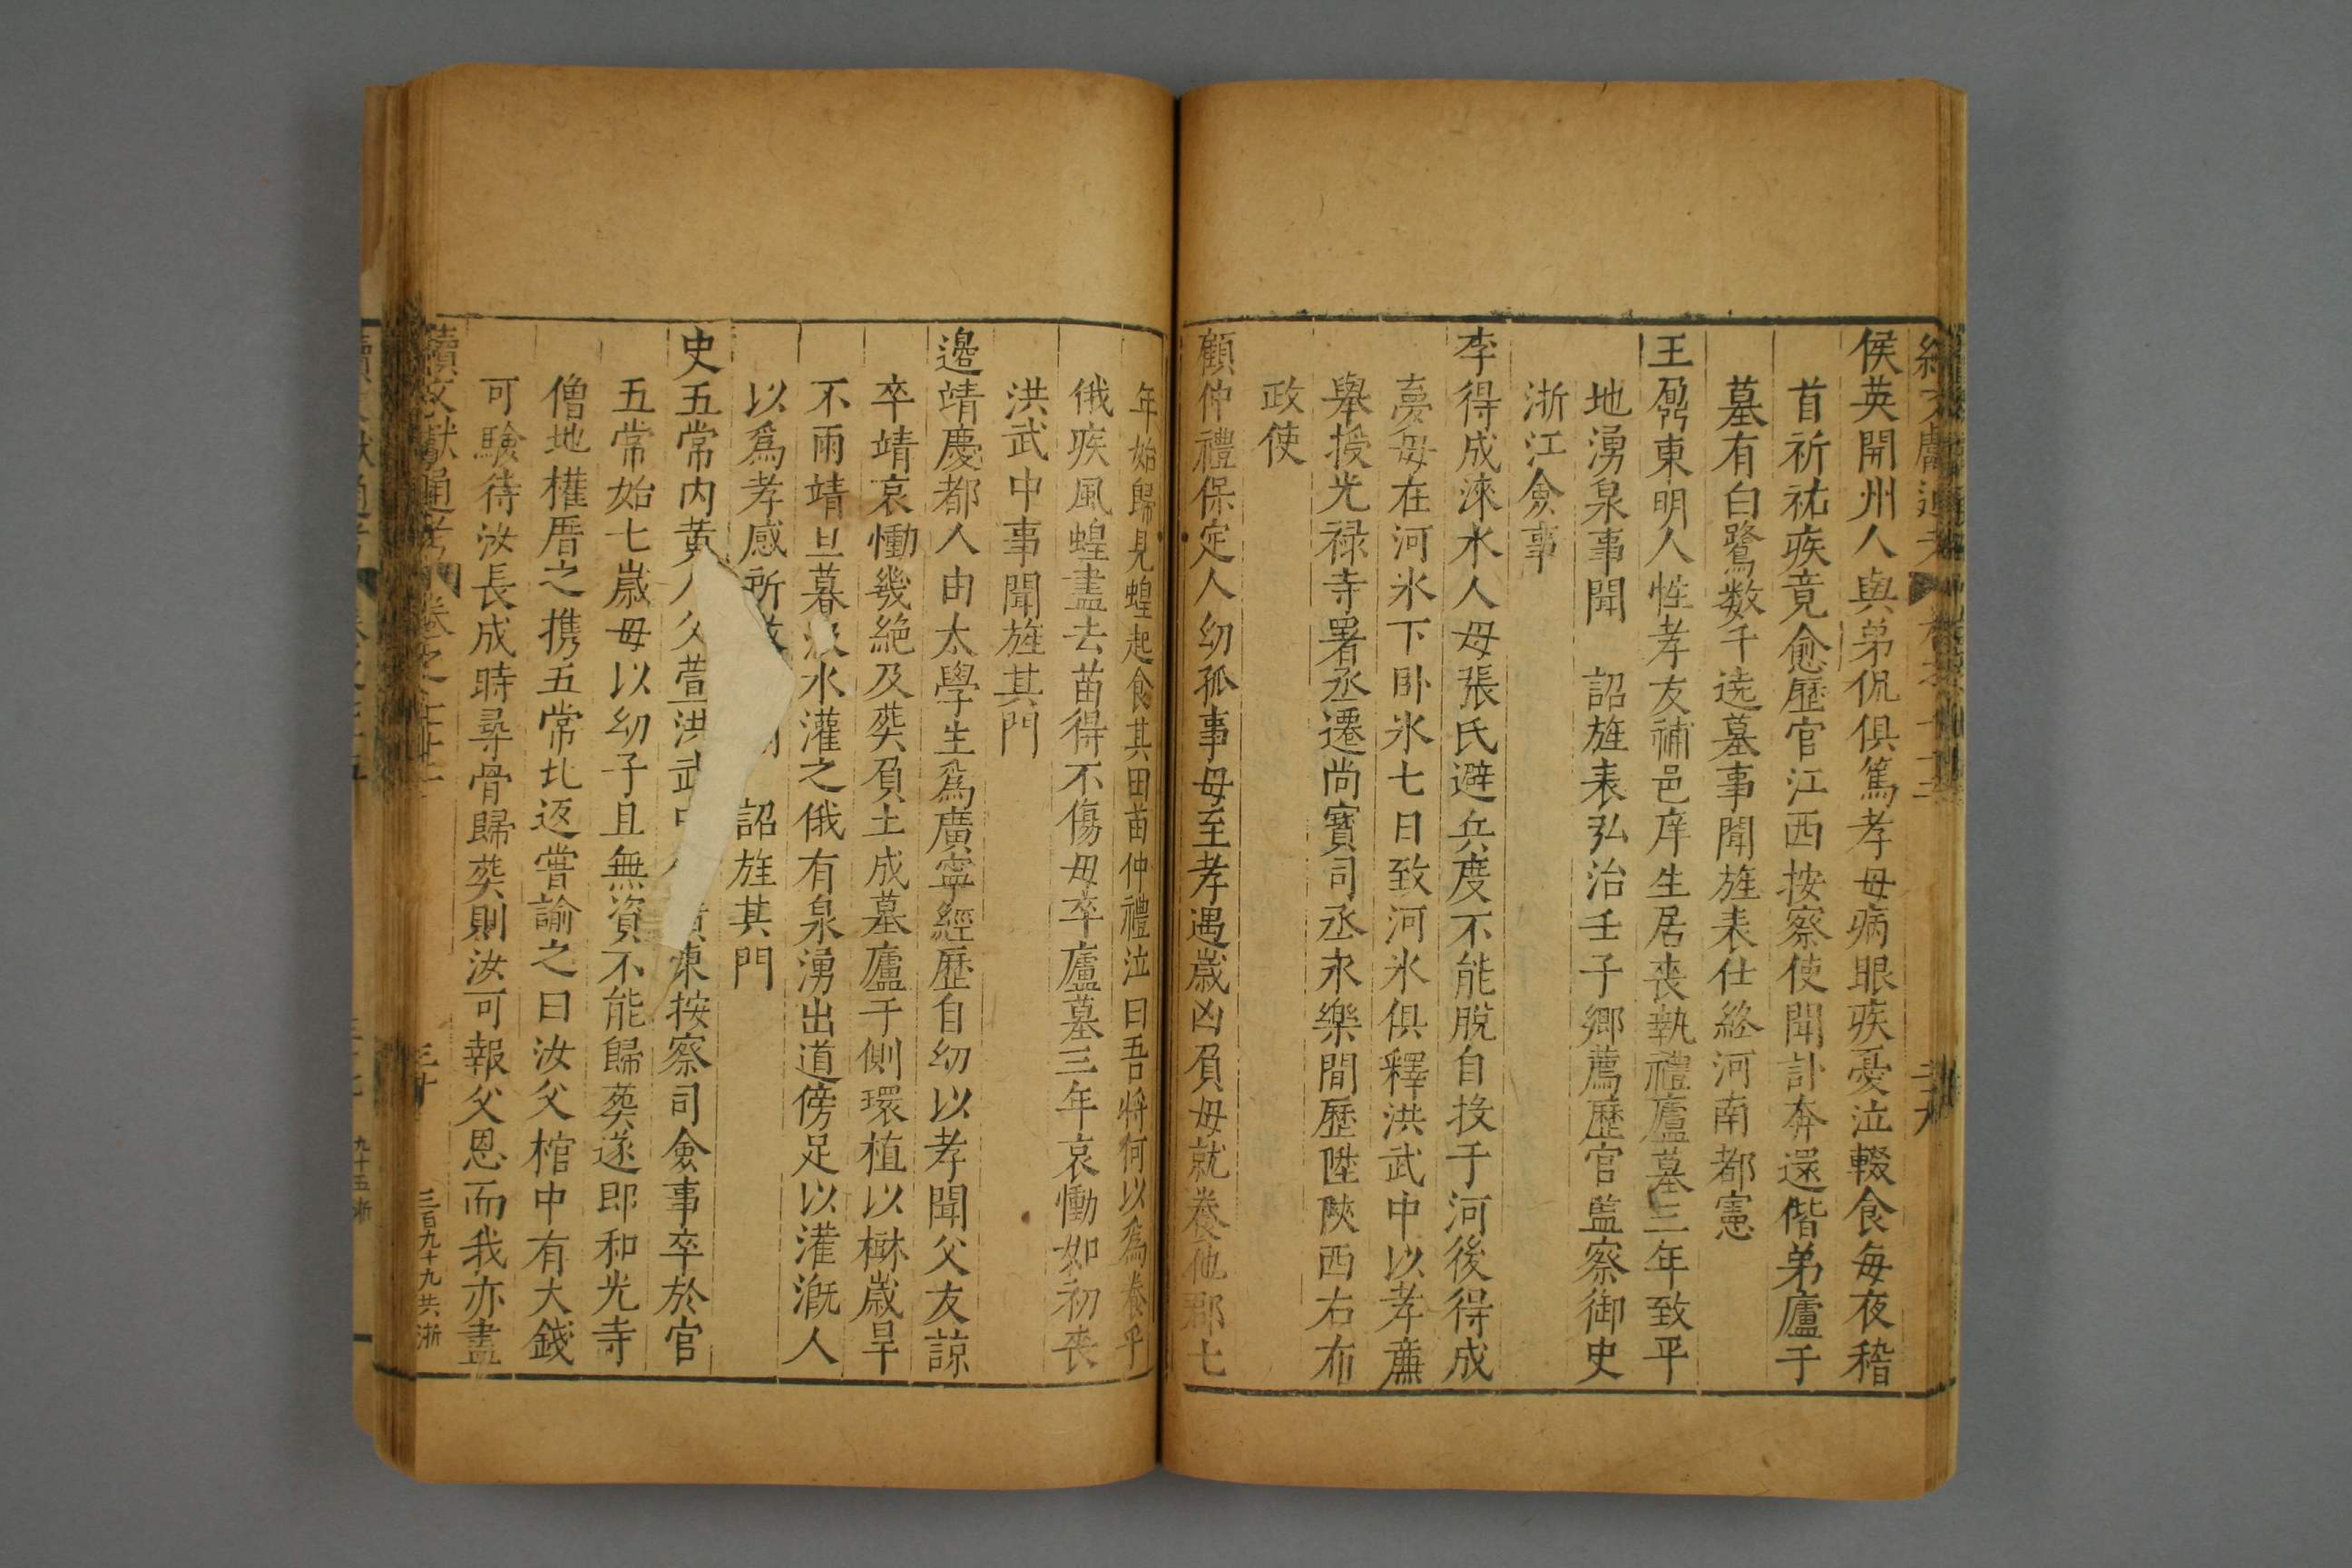 侯英開州人與弟侃俱篤孝母病眼疾憂泣輟食每夜稽
首祈祐疾竟愈歷官江西按察使聞訃奔還偕弟廬于
墓有白鷺数千遶墓事聞旌表仕終河南都憲
王爵東明人性孝友補邑庠生居喪執禮廬墓三年致平
地湧泉事聞 詔旌表弘治壬子鄉薦歷官監察御史
浙江僉事
李得成淶水人母張氏避兵度不能脫自投于河後得成
夢母在河氷下卧氷七日致河氷俱釋洪武中以孝廉
舉授光禄寺署丞遷尚寳司丞永樂間歷陞陝西右布
政使
顧仲禮保定人幼孤事母至孝遇歲凶負母就養他郡七
年始歸見蝗起食其田苗仲禮泣曰吾將何以為養乎
俄疾風蝗盡去苗得不傷母卒廬墓三年哀慟如初喪
洪武中事聞旌其門
邉靖慶都人由太學生爲廣寧經歷自幼以孝聞父友諒
卒靖哀慟幾絶及葬負土成墓廬于側環植以楙歲旱
不雨靖旦暮汲水灌之俄有泉湧出道傍足以灌漑人
以爲孝感所 詔旌其門
史五常内黄人父萱洪武中 廣東按察司僉事卒於官
五常始七歲母以幼子且無資不能歸葬遂即和光寺
僧地權厝之携五常北返甞諭之曰汝父棺中有大錢
可驗待汝長成時尋骨歸葬則汝可報父恩而我亦盡
續文獻通考 卷之 三十 三百九十九共浙